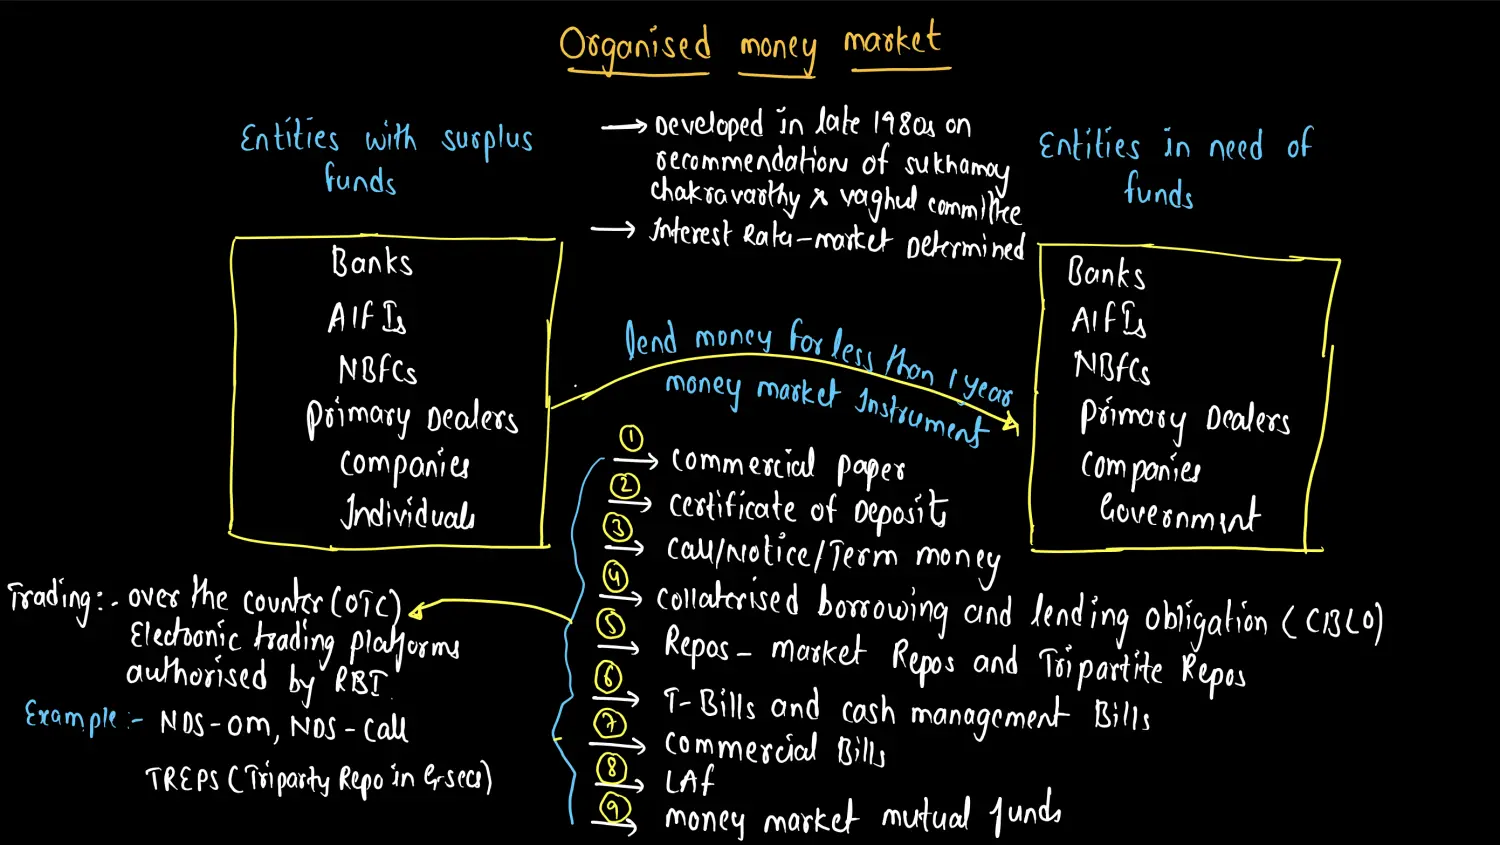 Organised money market
Entities with surplus
funds
Banks
AIFIs
NBFCs
Primary Dealers
Companies
Individuals
→ Developed in late 1980s on
recommendation of sukhamoy
chakravarthy & vaghul committee
→ Interest Rate - market Determined
Entities in need of
funds
Banks
AIFIs
NBFCs
Primary Dealers
Companies
Government
lend money for less than 1 year
money market Instrument
① → commercial paper
② → certificate of Deposits
③ → Call/Notice/Term money
④ → collaterised borrowing and lending obligation (CBLO)
⑤ → Repos - market Repos and Tripartite Repos
⑥ → T-Bills and cash management Bills
⑦ → commercial Bills
⑧ → LAF
⑨ → money market mutual funds
Trading:- over the counter (OTC)
Electronic trading platforms
authorised by RBI.
Example:- NDS-OM, NDS-Call
TREPS (Triparty Repo in G-secs)